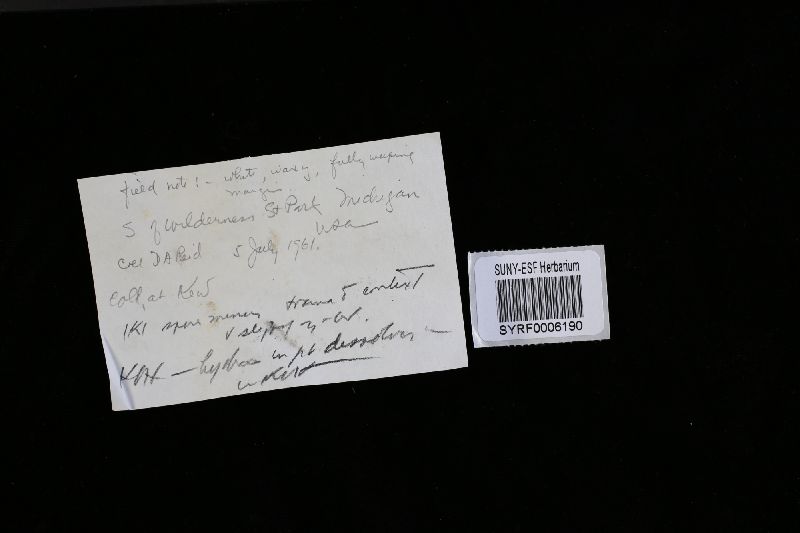 field note: - white, waxy, fully
margin.
S of Wilderness St Park Michigan
USA
coll DA Reid 5 July 1961.
Coll. at Kew
IKI spore trama & context
&
KOH - in pt dissolves -
in KOH
SUNY-ESF Herbarium
SYRF0006190